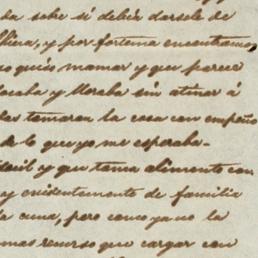 ta sobre si debía darsele de
china, y por fortuna encontramos
no quiso mamar y que parece
tocaba y lloraba sin atinar á
des tomaron la cosa con empeño
de lo que yo me esperaba.
débil y que tenia alimento con
y evidentemente de familia
la cuna, pero como ya no la
mas recurso que cargar con